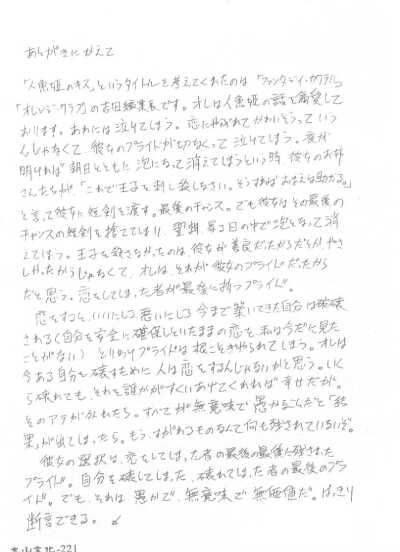 あとがきにかえて
「人魚姫のキス」というタイトルを考えてくれたのは「ファンタジィ・カクテル」
「オレンジ・クラブ」の吉田編集長です。オレは人魚姫の話を偏愛して
おります。あれには泣けてしまう。恋にやぶれてかわいそうってい
んじゃなくて 彼女のプライドが切なくって泣けてしまう。夜が
明ければ 朝日とともに 泡になって消えてしまうという時、彼女のお姉
さんたちが「これで王子を刺し殺しなさい。そうすればおまえは助かる。」
と言って彼女に短剣を渡す。最後のチャンス。でも彼女は その最後の
チャンスの短剣を捨ててしまい 翌朝 昇る日の中で泡となって消
えてしまう。王子を殺さなかったのは、彼女が善良だったからだとか、やさ
しかったからじゃなくて、オレは、それが彼女のプライドだったから
だと思う。恋をしてしまった者が最後に持つプライド。
恋をすると、いいにしろ悪いにしろ 今まで築いてきた自分は破壊
される（自分を安全に確保しといたままの恋を、私は今だに見た
ことがない） とりわけプライドは根こそぎやられてしまう。オレは
今ある自分を壊すために 人は恋をするんじゃないかと思う。いく
ら壊れても、それを誰かがすくいあげてくれれば 幸せだが。
そのアテが外れたら。すべてが無意味で愚かなことだと「結
果」が出てしまったら。もう、すがれるものなんて何も残されていないぞ。
彼女の選択は、恋をしてしまった者の最後の最後に残された
プライド。自分を壊してしまった、壊れてしまった者の最後のプラ
イド。でも、それは 愚かで、無意味で 無価値だ。はっきり
断言できる。